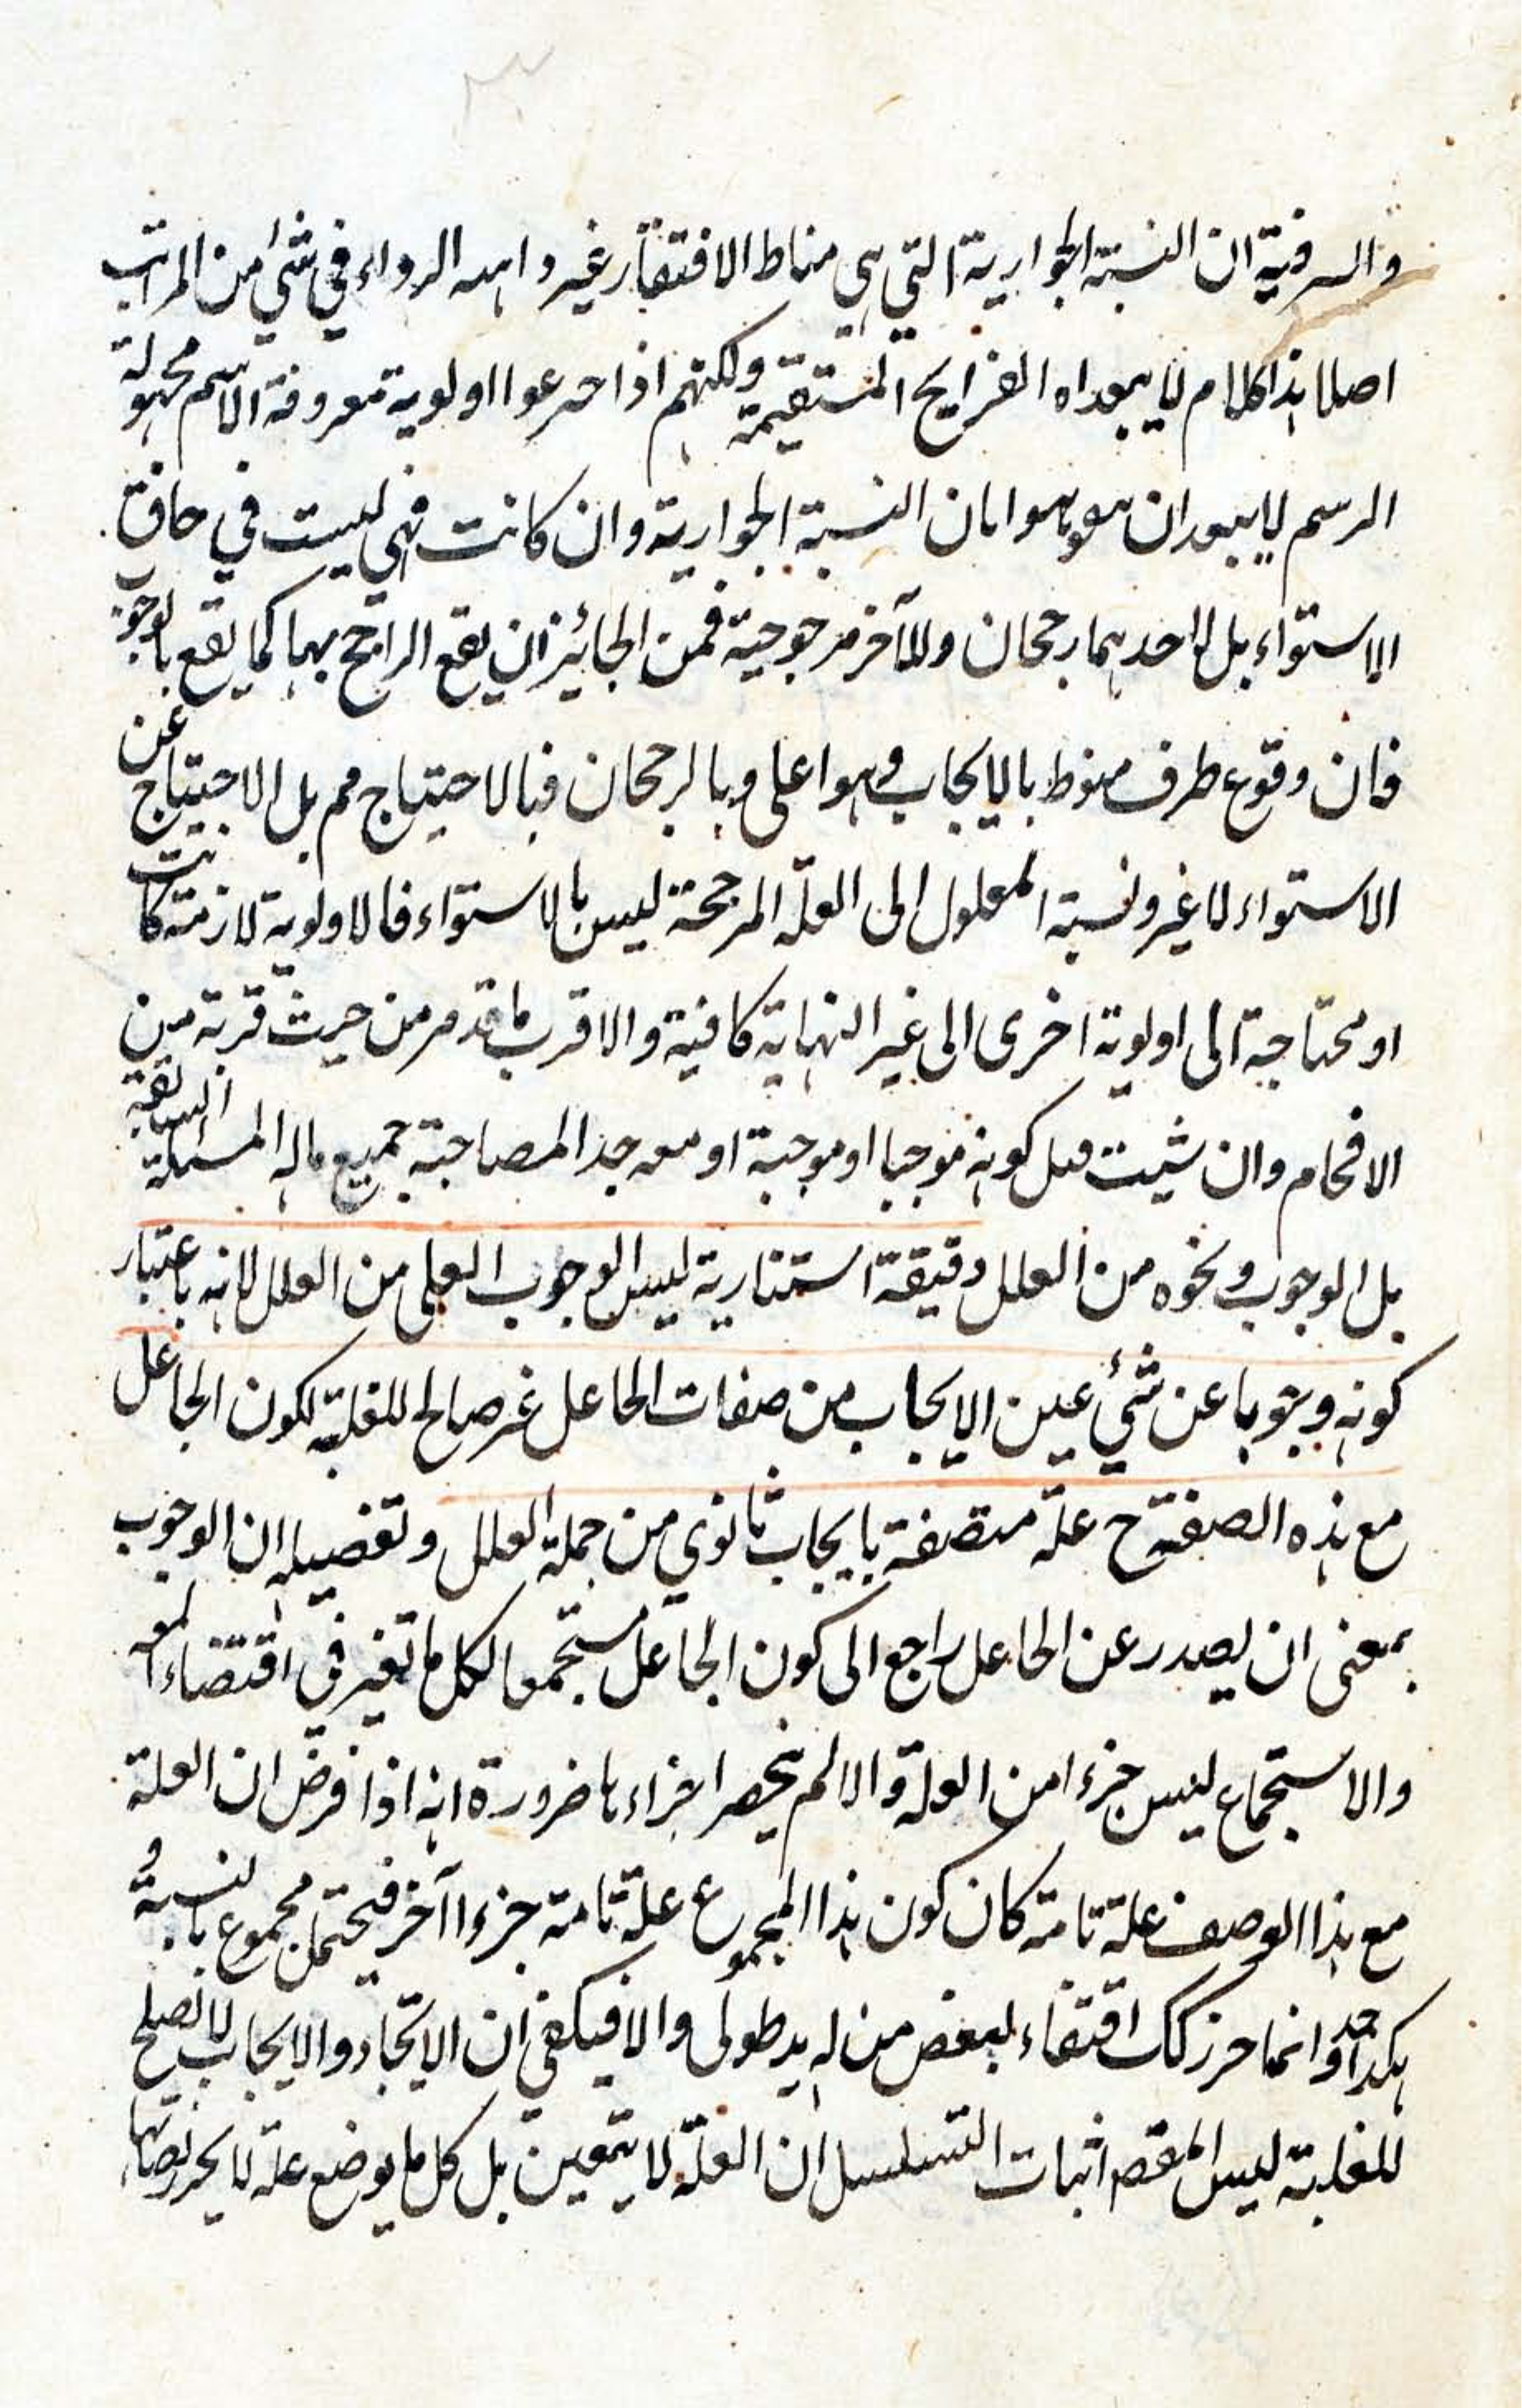 والسر فيه ان النسبة الجوازية التي هي مناط الافتقار غير واهية الرداء في شئ من المراتب
اصلا هذا كلام لا يتعداه القرايح المستقيمة ولكنهم اذا اخترعوا اولوية معروفة الاسم مجهولة
الرسم لا يبعد ان يفوهوا بان النسبة الجوازية وان كانت فهي ليست في حاق
الاستواء بل لاحدهما رجحان وللآخر مرجوحية فمن الجائز ان يقع الراجح بها كما يقع بالوجوب
فان وقوع طرف منوط بالايجاب وهو اعلى وبالرجحان فبالاحتياج مم بل الاحتياج عن
الاستواء لا غير ونسبة المعلول الى العلة المرجحة ليس بالاستواء فالاولوية لازمة كانت
او محتاجة الى اولوية اخرى الى غير النهاية كافية والاقرب ما قد مر من حيث قربه من
الافحام وان شئت كونه موجبا او موجبة او معه جدا لمصاحبة جميع ماله المسئلة السابقة
بل الوجوب ونحوه من العلل دقيقة استنارية ليس الوجوب العلي من العلل لانه باعتبار
كونه وجوبا عن شئ عين الايجاب من صفات الجاعل غير صالح للعلية لكون الجاعل
مع هذه الصفة ح علة متصفة بايجاب ثانوي من جملة العلل وتفصيله ان الوجوب
بمعنى ان يصدر عن الجاعل راجع الى كون الجاعل مستجمعا لكل ما تغير في اقتضاء المعه
والاستجماع ليس جزءا من العلة والا لم ينحصر اجزاءها ضرورة انه اذا فرض ان العلة
مع هذا الوصف علة تامة كان كون هذا المجموع علة تامة جزءا آخر فيحتمل مجموع بالنسبة و
هكذا وانما حرز كك اقتفاء لبعض من له يد طولى والا فيكفي ان الاتحاد والايجاب لا تصلح
للعلية ليس المقصم اثبات التسلسل ان العلة لا يتعين بل كل ما يوضع علة لا يحرز نصابها